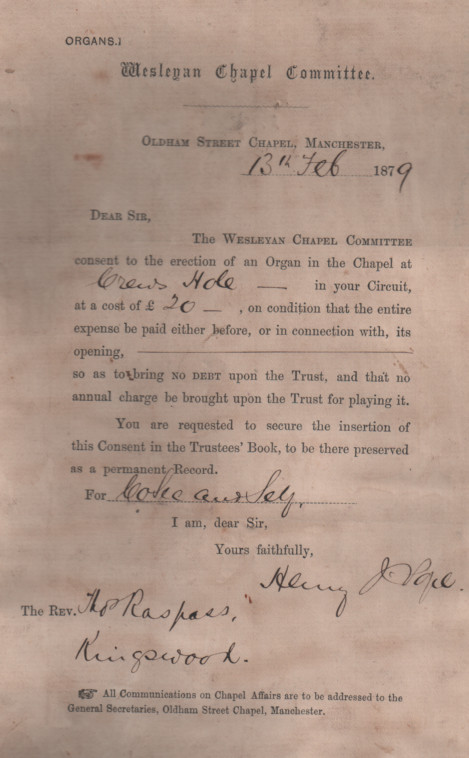 ORGANS.]
Wesleyan Chapel Committee.
OLDHAM STREET CHAPEL, MANCHESTER,
13th Feb 1879
DEAR SIR,
The WESLEYAN CHAPEL COMMITTEE
consent to the erection of an Organ in the Chapel at
Crews Hole — in your Circuit,
at a cost of £ 20 — , on condition that the entire
expense be paid either before, or in connection with, its
opening,
so as to bring NO DEBT upon the Trust, and that no
annual charge be brought upon the Trust for playing it.
You are requested to secure the insertion of
this Consent in the Trustees' Book, to be there preserved
as a permanent Record.
For and Self,
I am, dear Sir,
Yours faithfully,
Henry J. Pope.
The REV. Thos Raspass,
Kingswood.
☞ All Communications on Chapel Affairs are to be addressed to the
General Secretaries, Oldham Street Chapel, Manchester.